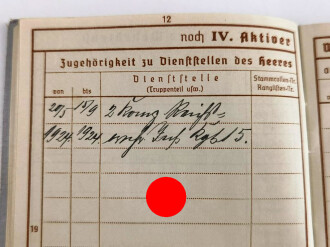 12
noch IV. Aktiver
Zugehörigkeit zu Dienststellen des Heeres
von bis Dienststelle (Truppenteil usw.) Stammrollen-Nr. Ranglisten-Nr.
20/5 15/9 2
1924. 1924 Inf. Rgt 15.
19